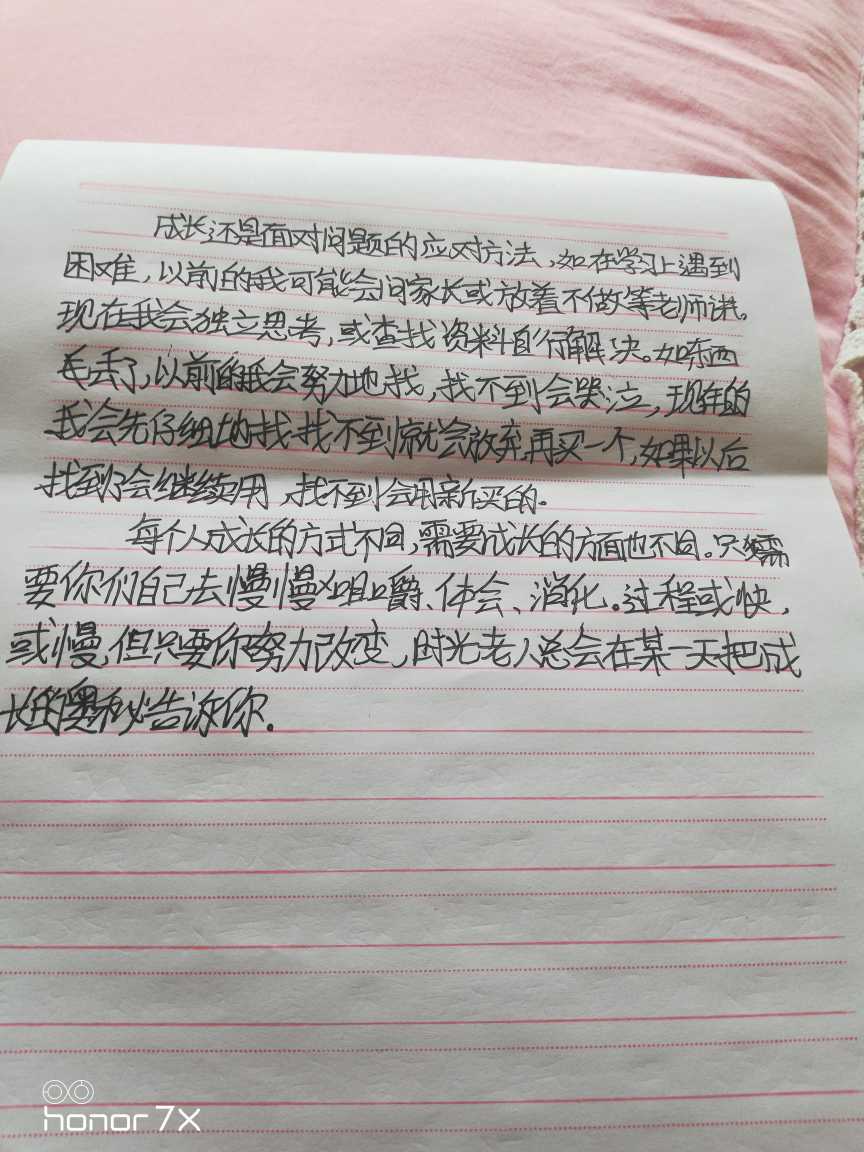 成长还是面对问题的应对方法,如在学习上遇到
困难,以前的我可能会问家长或放着不做等老师讲。
现在我会独立思考,或查找资料自行解决。如东西
丢了,以前的我会努力地找,找不到会哭泣,现在的
我会先仔细地找.找不到就会放弃,再买一个,如果以后
找到了会继续用,找不到会用新买的。
每个人成长的方式不同,需要成长的方面也不同。只需
要你们自己去慢慢咀嚼、体会、消化。过程或快,
或慢,但只要你努力改变,时光老人总会在某一天把成
长的奥秘告诉你.
honor 7X